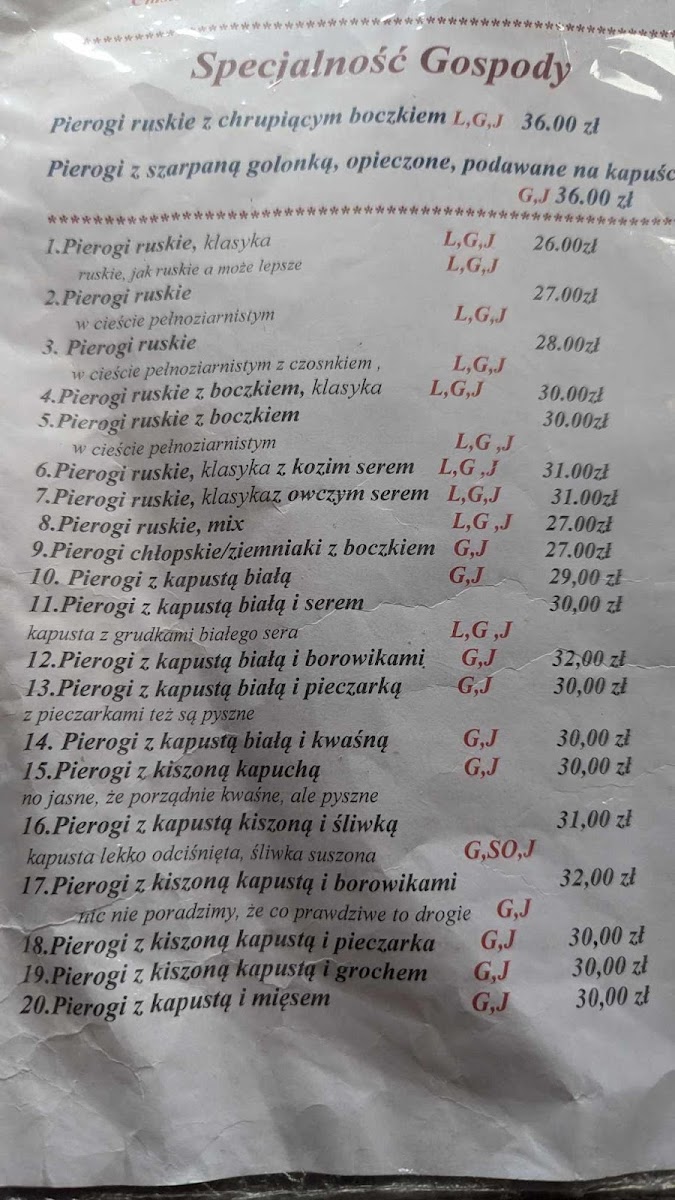 ************************************
Specjalność Gospody
Pierogi ruskie z chrupiącym boczkiem L,G,J 36.00 zł
Pierogi z szarpaną golonką, opieczone, podawane na kapuśc
G,J 36.00 zł
************************************
1.Pierogi ruskie, klasyka L,G,J 26.00zł
ruskie, jak ruskie a może lepsze L,G,J
2.Pierogi ruskie 27.00zł
w cieście pełnoziarnistym L,G,J
3. Pierogi ruskie 28.00zł
w cieście pełnoziarnistym z czosnkiem , L,G,J
4.Pierogi ruskie z boczkiem, klasyka L,G,J 30.00zł
5.Pierogi ruskie z boczkiem 30.00zł
w cieście pełnoziarnistym L,G ,J
6.Pierogi ruskie, klasyka z kozim serem L,G ,J 31.00zł
7.Pierogi ruskie, klasykaz owczym serem L,G,J 31.00zł
8.Pierogi ruskie, mix L,G ,J 27.00zł
9.Pierogi chłopskie/ziemniaki z boczkiem G,J 27.00zł
10. Pierogi z kapustą białą G,J 29,00 zł
11.Pierogi z kapustą białą i serem 30,00 zł
kapusta z grudkami białego sera L,G ,J
12.Pierogi z kapustą białą i borowikami G,J 32,00 zł
13.Pierogi z kapustą białą i pieczarką G,J 30,00 zł
z pieczarkami też są pyszne
14. Pierogi z kapustą białą i kwaśną G,J 30,00 zł
15.Pierogi z kiszoną kapuchą G,J 30,00 zł
no jasne, że porządnie kwaśne, ale pyszne
16.Pierogi z kapustą kiszoną i śliwką 31,00 zł
kapusta lekko odciśnięta, śliwka suszona G,SO,J
17.Pierogi z kiszoną kapustą i borowikami 32,00 zł
nic nie poradzimy, że co prawdziwe to drogie G,J
18.Pierogi z kiszoną kapustą i pieczarka G,J 30,00 zł
19.Pierogi z kiszoną kapustą i grochem G,J 30,00 zł
20.Pierogi z kapustą i mięsem G,J 30,00 zł